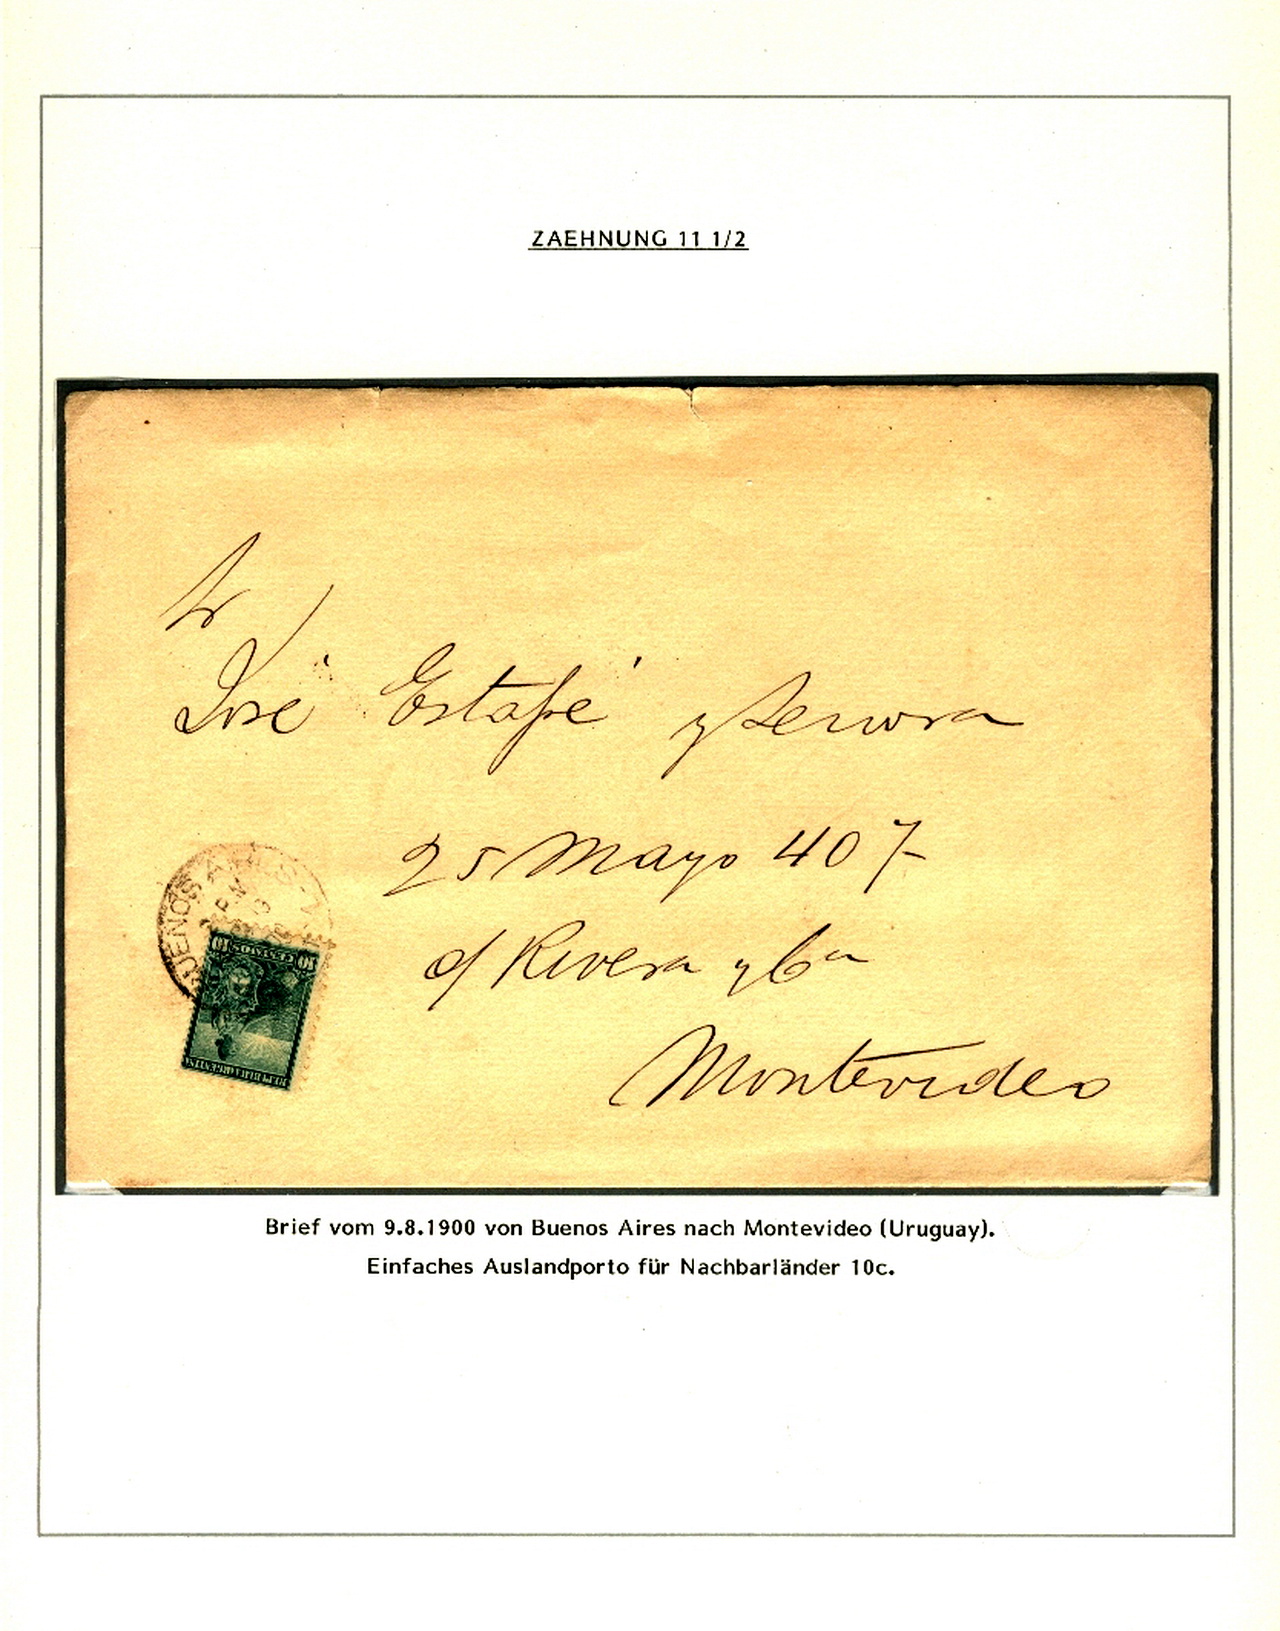 ZAEHNUNG 11 1/2
Sr
José Estapé y Senora
25 Mayo 407
d/ Rivera y
Montevideo
BUENOS AIRES
10 CENTAVOS 10
REPUBLICA ARGENTINA
Brief vom 9.8.1900 von Buenos Aires nach Montevideo (Uruguay).
Einfaches Auslandporto für Nachbarländer 10c.